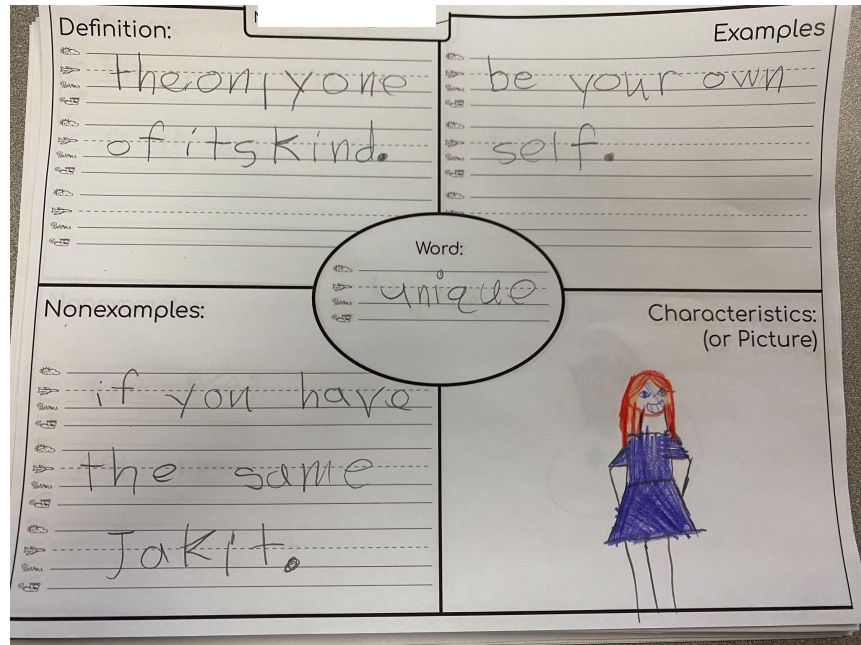 Definition:
the only one
of its kind.
Examples
be your own
self.
Word:
unique
Nonexamples:
if you have
the same
Jakit.
Characteristics:
(or Picture)